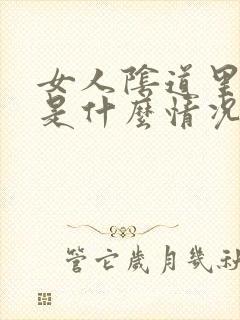 女人陰道里
是什麼情况
管它歲月幾